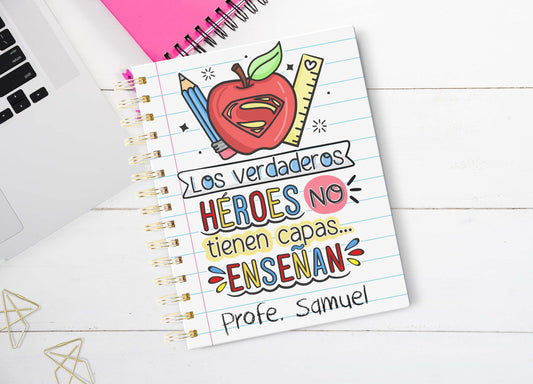 Los verdaderos
HÉROES NO
tienen capas...
ENSEÑAN
Profe. Samuel